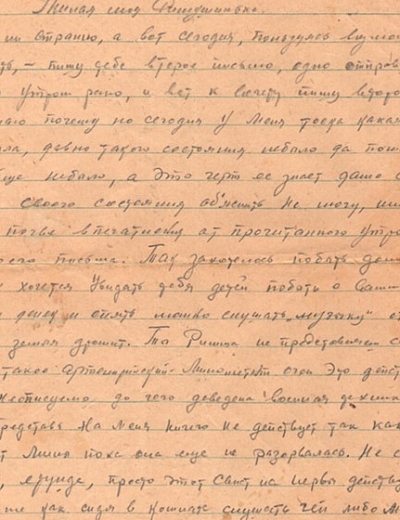 Милая моя
ни странно, а вот сегодня, пользуюсь
ть, – пишу тебе второе письмо, одно отправ
Утром рано, и вот к вечеру пишу второ
наю почему но сегодня у меня тоска какая
ла, давно такого состояния небыло да
еще небыло, а это черт ее знает даже
своего состояния об'яснить не могу,
почве впечатления от прочитанного утро
ого письма. Так захотелось побыть дома
хочется увидать тебя детей побыть с Вами
и опять можно слушать „музыку" от
земля дрожит. Ты Римма не представляеш
такое Артиллерийский-Минометный огон Это дейст
до чего доведена военная техника
редставь На меня ничего не действует так как
т Мина пока она еще не разорвалась. Не
, ерунда, просто этот свист на нервы действу
же как сидя в комнате слушать чей либо